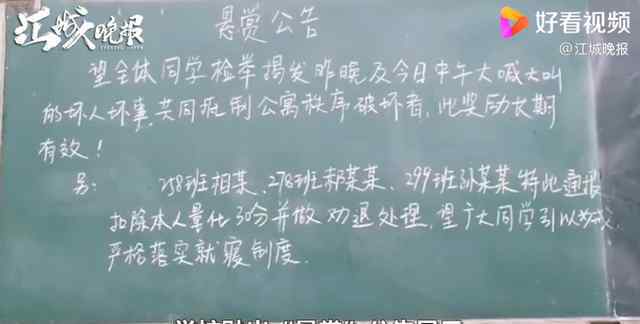 江城晚报
好看视频
@江城晚报
悬赏公告
望全体同学检举揭发昨晚及今日中午大喊大叫
的坏人坏事,共同抵制公寓秩序破坏者,此奖励长期
有效!
另: 258班相某、278班郝某某、299班孙某某特此通报
扣除本人量化30分并做劝退处理,望广大同学引以为戒,
严格落实就寝制度.